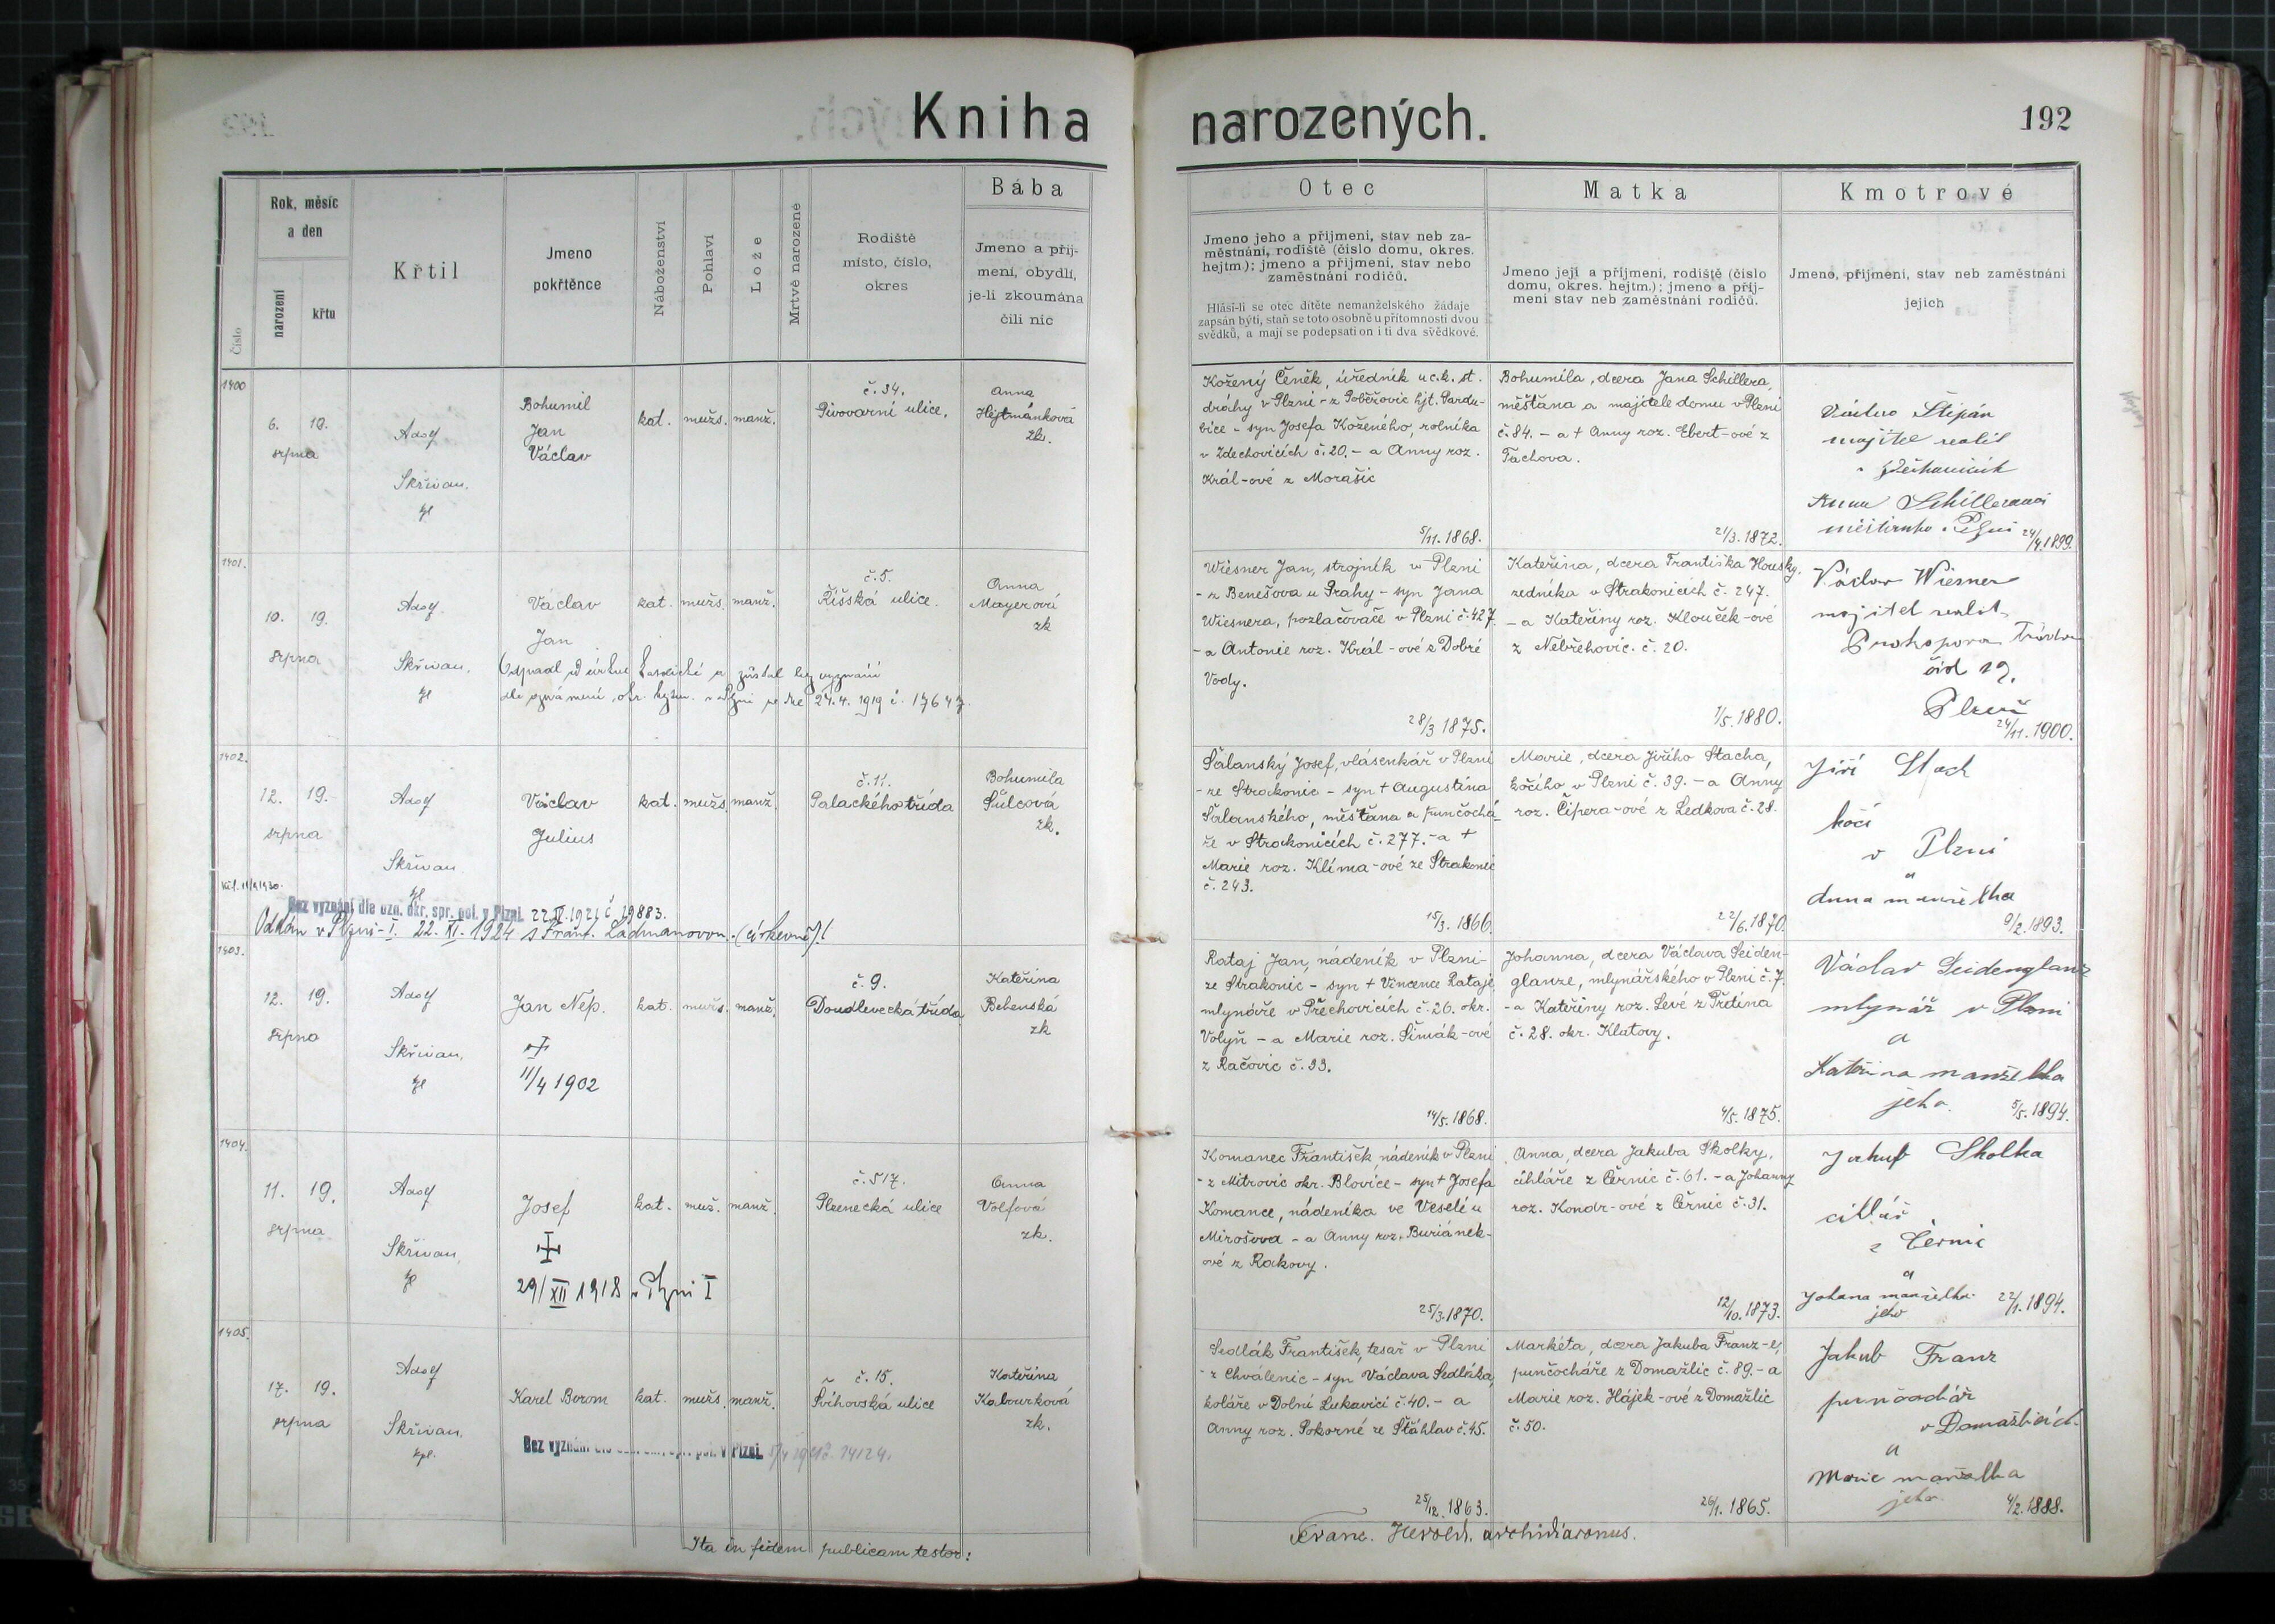 Kniha narozených.
192
Číslo
Rok, měsíc
a den
narození
křtu
Křtil
Jmeno
pokřtěnce
Náboženství
Pohlaví
Lože
Mrtvé narozené
Rodiště
místo, číslo,
okres
Bába
Jmeno a příj-
mení, obydlí,
je-li zkoumána
čili nic
Otec
Jmeno jeho a příjmení, stav neb za-
městnání, rodiště (číslo domu, okres.
hejtm.); jmeno a příjmení, stav nebo
zaměstnání rodičů.
Hlásí-li se otec dítěte nemanželského žádaje
zapsán býti, staň se toto osobně u přítomnosti dvou
svědků, a mají se podepsati on i ti dva svědkové.
Matka
Jmeno její a příjmení, rodiště (číslo
domu, okres. hejtm.); jmeno a příj-
mení stav neb zaměstnání rodičů.
Kmotrové
Jmeno, příjmení, stav neb zaměstnání
jejich
1400
6. 19.
srpna
Adolf
Skřivan,
Bohumil
Jan
Václav
kat. mužs. manž.
č. 34.
Pivovarní ulice.
Anna
Hejtmánková
zk.
Kožený Čeněk, úředník u c. k. st.
dráhy v Plzni - z Poběžovic hjt. Pardu-
bice - syn Josefa Koženého, rolníka
v Zdechovicích č. 20. - a Anny roz.
Král-ové z Morašic
5/11. 1868.
Bohumila, dcera Jana Schillera,
měšťana a majitele domu v Plzni
č. 84. - a + Anny roz. Ebert-ové z
Tachova.
21/3. 1872.
Štěpán
majitel realit
Anna Schillerová
24/4. 1899.
1401.
10. 19.
srpna
Adolf
Skřivan,
Václav
Jan
kat. mužs. manž.
č. 5.
Říšská ulice.
Anna
Mayerová
zk
Odpadl od církve katolické a zůstal bez vyznání
dle oznámení okr. hejtm. v Plzni ze dne 24. 4. 1919 č. 17647.
Wiesner Jan, strojník v Plzni
- z Benešova u Prahy - syn Jana
Wiesnera, pozlačovače v Plzni č. 427.
- a Antonie roz. Král-ové z Dobré
Vody.
28/3 1875.
Kateřina, dcera Františka Housky,
zedníka v Strakonicích č. 247.
- a Kateřiny roz. Klouček-ové
z Nebřehovic. č. 20.
1/5. 1880.
Václav Wiesner
majitel realit,
Prokopova třída
čís 19.
Plzeň
24/11. 1900.
1402.
12. 19.
srpna
Adolf
Skřivan
Václav
Julius
kat. mužs. manž.
č. 11.
Palackého třída
Bohumila
Šulcová
zk.
Bez vyznání dle ozn. okr. spr. pol. v Plzni. 1921 č 19883.
Oddán v Plzni-I. 22. XI. 1924 s Frant. Ladmanovou. (církevně)!
Šalanský Josef, vlásenkář v Plzni
- ze Strakonic - syn + Augustina
Šalanského, měšťana a punčochá-
ře v Strakonicích č. 277. - a +
Marie roz. Klíma-ové ze Strakonic
č. 243.
15/3. 1866.
Marie, dcera Jiřího Stacha,
kočího v Plzni č. 39. - a Anny
roz. Čipera-ové z Ledkova č. 28.
22/6. 1870.
Jiří Stach
kočí
v Plzni
a
Anna manželka
9/2. 1893.
1403.
12. 19.
srpna
Adolf
Skřivan,
Jan Nep.
+
11/4 1902
kat. mužs. manž.
č. 9.
Doudlevecká třída
Kateřina
Behenská
zk
Rataj Jan, nádeník v Plzni -
ze Strakonic - syn + Vincence Rataje,
mlynáře v Přechovicích č. 26. okr.
Volyň - a Marie roz. Šimák-ové
z Račovic č. 33.
14/5. 1868.
Johanna, dcera Václava Seiden-
glanze, mlynářského v Plzni č. 7.
- a Kateřiny roz. Levé z Předina
č. 28. okr. Klatovy.
4/5. 1875.
Václav Seidenglanz
mlynář v Plzni
a
Kateřina manželka
jeho.
5/5. 1894.
1404.
11. 19.
srpna
Adolf
Skřivan,
Josef
29/XII 1918 v Plzni I
kat. muž. manž.
č. 517.
Plzenecká ulice
Anna
Volfová
zk.
Komanec František, nádeník v Plzni
- z Mitrovic okr. Blovice - syn + Josefa
Komance, nádeníka ve Veselé u
Mirošova - a Anny roz. Buriánek-
ové z Rakovy.
25/3. 1870.
Anna, dcera Jakuba Skolky,
cihláře z Černic č. 61. - a Johanny
roz. Kondr-ové z Černic č. 31.
12/10. 1873.
Jakub Skolka
cihlář
z Černic
a
Johana manželka
jeho
22/1. 1894.
1405.
17. 19.
srpna
Adolf
Skřivan,
kpl.
Karel Borom
kat. mužs. manž.
č. 15.
Švihovská ulice
Kateřina
Kabourková
zk.
Bez vyznání dle ozn. okr. spr. pol. v Plzni. 14124.
Sedlák František, tesař v Plzni
- z Chválenic - syn Václava Sedláka,
koláře v Dolní Lukavici č. 40. - a
Anny roz. Pokorné ze Šťáhlav č. 45.
25/12. 1863.
Markéta, dcera Jakuba Franz-e,
punčocháře z Domažlic č. 89. - a
Marie roz. Hájek-ové z Domažlic
č. 50.
26/1. 1865.
Jakub Franz
punčochář
v Domažlicích.
a
Marie manželka
jeho.
4/2. 1888.
Ita in fidem publicam testor:
Franc. Herold, archidiaconus.